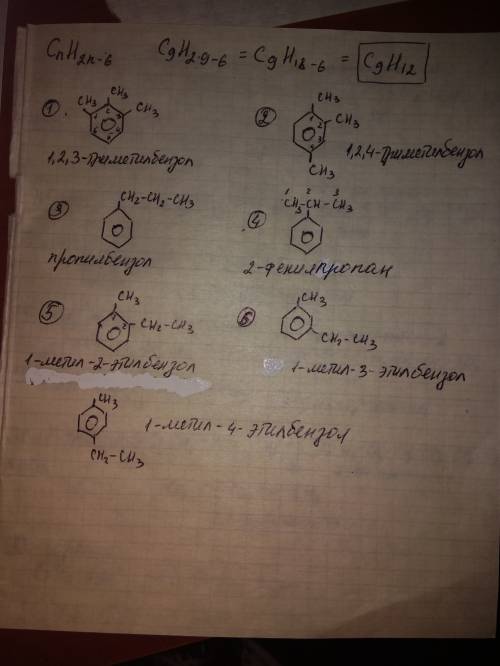 CnH2n-6 C9H2·9-6 = C9H18-6 = C9H12
① CH3 CH3 CH3
1,2,3-триметилбензол
② CH3 CH3 CH3
1,2,4-триметилбензол
③ CH2-CH2-CH3
пропилбензол
④ 1 2 3
CH3-CH-CH3
2-фенилпропан
⑤ CH3 CH2-CH3
1-метил-2-этилбензол
⑥ CH3 CH2-CH3
1-метил-3-этилбензол
CH3
1-метил-4-этилбензол
CH2-CH3